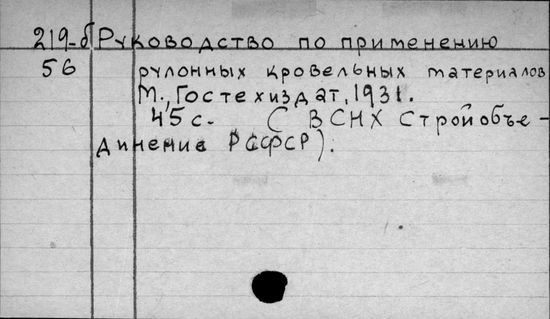 219-б Руководство по применению
56 рулонных кровельных материалов
М., Гостехиздат, 1931.
45 с. (ВСНХ Стройобъе-
динение РСФСР).